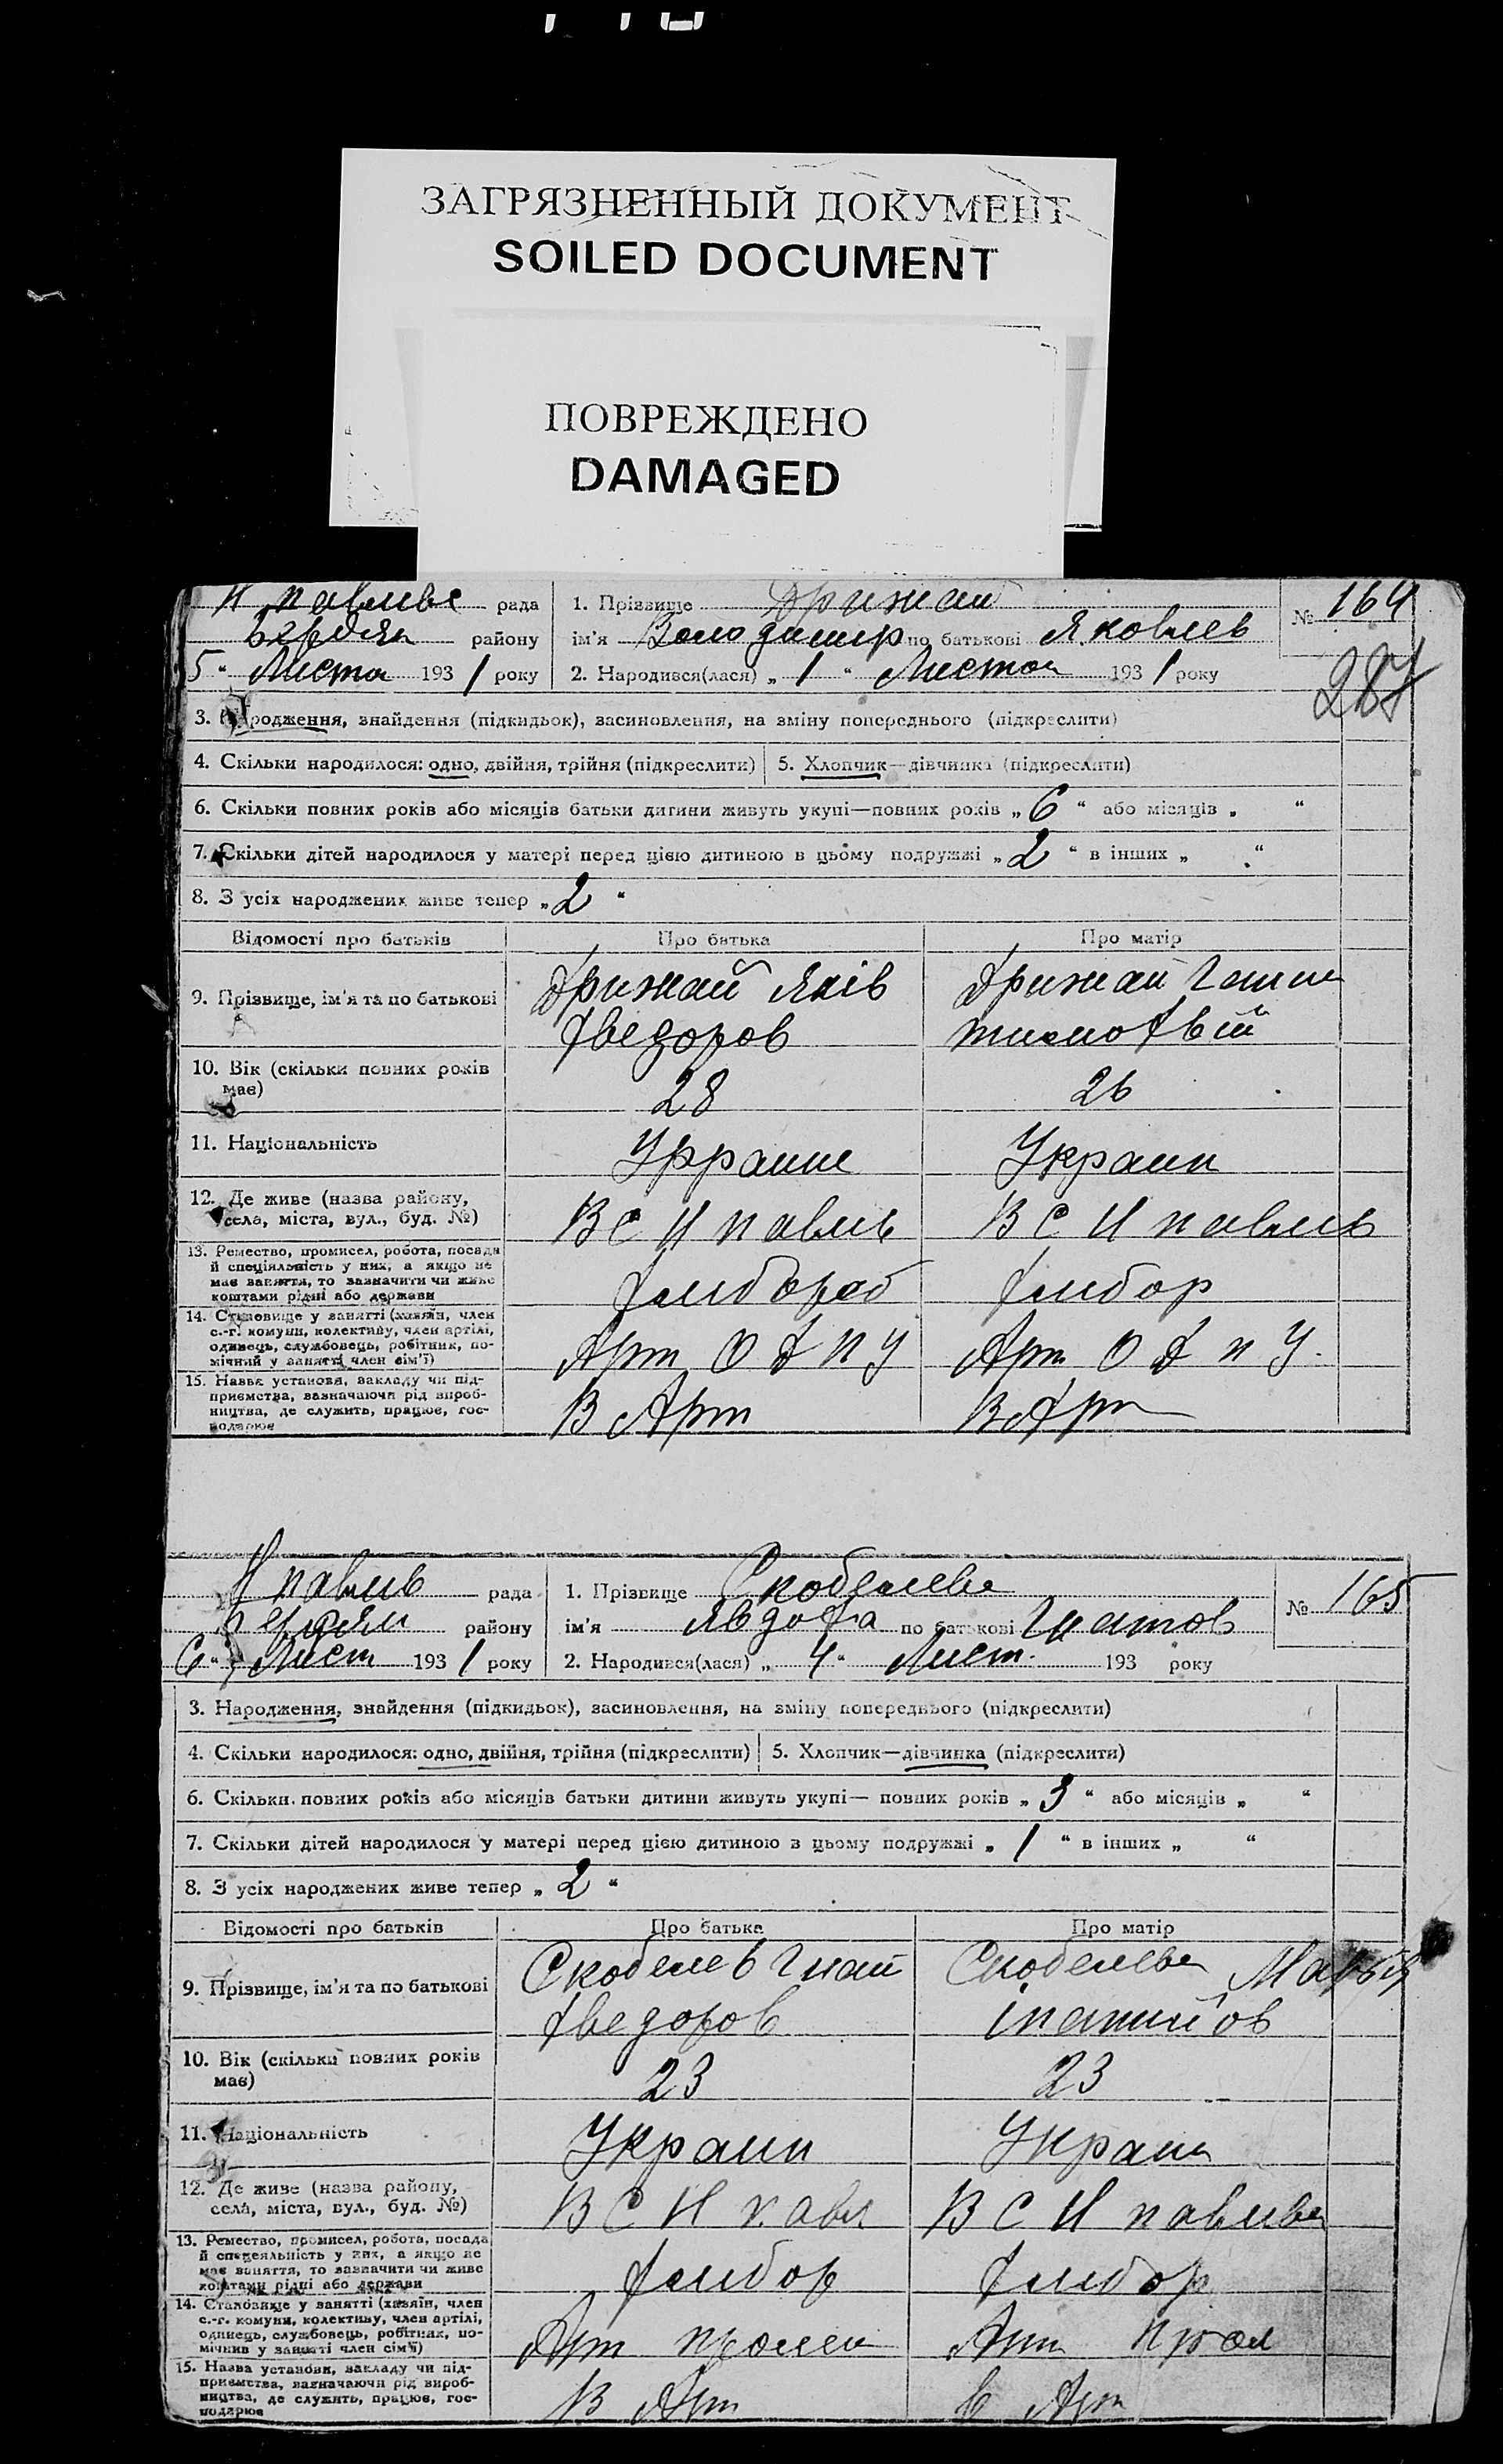 ЗАГРЯЗНЕННЫЙ ДОКУМЕНТ
SOILED DOCUMENT
ПОВРЕЖДЕНО
DAMAGED
Н павливс рада 1. Прізвище Дрижай № 164
району ім'я Володимир по батькові Яковлев
5 " Листо 193 1 року 2. Народився(лася) „ 1 " Листоп 193 1 року
287
3. Народження, знайдення (підкидьок), засиновлення, на зміну попереднього (підкреслити)
4. Скільки народилося: одно, двійня, трійня (підкреслити) 5. Хлопчик—дівчинка (підкреслити)
6. Скільки повних років або місяців батьки дитини живуть укупі—повних років „ 6 " або місяців „ "
7. Скільки дітей народилося у матері перед цією дитиною в цьому подружжі „ 2 " в інших „ "
8. З усіх народжених живе тепер „ 2 "
Відомості про батьків Про батька Про матір
9. Прізвище, ім'я та по батькові Дрижай Яків Дрижай
Фведоров
10. Вік (скільки повних років 28 26
має)
11. Національність Украин
12. Де живе (назва району, В С Н павлив В С Н павлив
села, міста, вул., буд. №)
13. Ремество, промисел, робота, посада
й спеціяльність у них, а якщо не
має заняття, то зазначити чи живе
коштами рідні або держави
14. Становище у занятті (хазяїн, член Арт О Д П У Арт О Д П У.
с.-г. комуни, колективу, член артілі,
одинець, службовець, робітник, по-
мічний у занятті член сім'ї)
15. Назва установи, закладу чи під- В Арт В Арт
приємства, зазначаючи рід вироб-
ництва, де служить, працює, гос-
подарює
Н павлив рада 1. Прізвище Скобелева № 165
району ім'я Явдоха по батькові Гнатов
6 " Лист 193 1 року 2. Народився(лася) „ 4 " Лист. 193 року
3. Народження, знайдення (підкидьок), засиновлення, на зміну попереднього (підкреслити)
4. Скільки народилося: одно, двійня, трійня (підкреслити) 5. Хлопчик—дівчинка (підкреслити)
6. Скільки повних років або місяців батьки дитини живуть укупі— повних років „ 3 " або місяців „ "
7. Скільки дітей народилося у матері перед цією дитиною в цьому подружжі „ 1 " в інших „ "
8. З усіх народжених живе тепер „ 2 "
Відомості про батьків Про батька Про матір
9. Прізвище, ім'я та по батькові Скобелев Гнат Скобелева
Фведоров
10. Вік (скільки повних років 23 23
має)
11. Національність Украин Украин
12. Де живе (назва району, В С Н павл В С Н павливе
села, міста, вул., буд. №)
13. Ремество, промисел, робота, посада
й спецеяльність у них, а якщо не
має заняття, то зазначити чи живе
коштами рідні або держави
14. Становище у занятті (хазяїн, член Арт Арт
с.-г. комуни, колективу, член артілі,
одинець, службовець, робітник, по-
мічний у занятті член сім'ї)
15. Назва установи, закладу чи під- В Арт в Арт
приємства, зазначаючи рід вироб-
ництва, де служить, працює, гос-
подарює